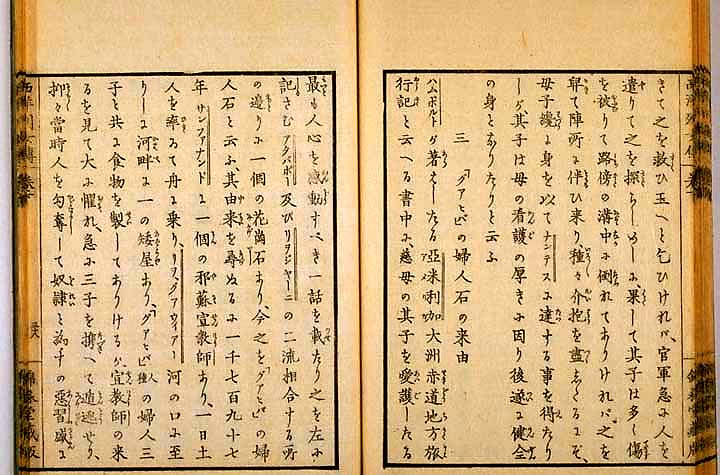 きて之を救ひ玉へと乞ひければ、官軍急に人を
遣りて之を探らしめしに、果して其子は多く傷
を被りて路傍の溝中に倒れてありければ之を
舁て陣所に伴ひ来り、種々介抱を盡しくるにぞ、
母子纔に身を以てナンテスに達する事を得たり
しが其子は母の看護の厚きに因り後遂に健全
の身となりたりと云ふ
三 「グアヒバ」の婦人石の来由
ハムボルトが著えしたる亞米利咖大洲赤道地方旅
行記と云へる書中に、慈母の其子を愛護したる
最も人心を感動すべき一話を載たり之を左に
記さむアタバポー及びリヲジヤーニの二流相合する所
の邊りに一個の花崗石あり、今之を「グアヒバ」の婦
人石と云ふ其由来を尋ぬるに一千七百九十七
年サンフアナンドに一個の耶蘇宣教師あり、一日土
人を率ゐて舟に乗り、リヲ、グアウイアー河の口に至
りしに河畔に一の矮屋あり、「グアヒバ」種人の婦人三
子と共に食物を製してありけるが宣教師の来
るを見て大に懼れ、急に三子を携へて逋逃せり、
抑々當時人を勾奪して奴隷と為すの惡習盛に